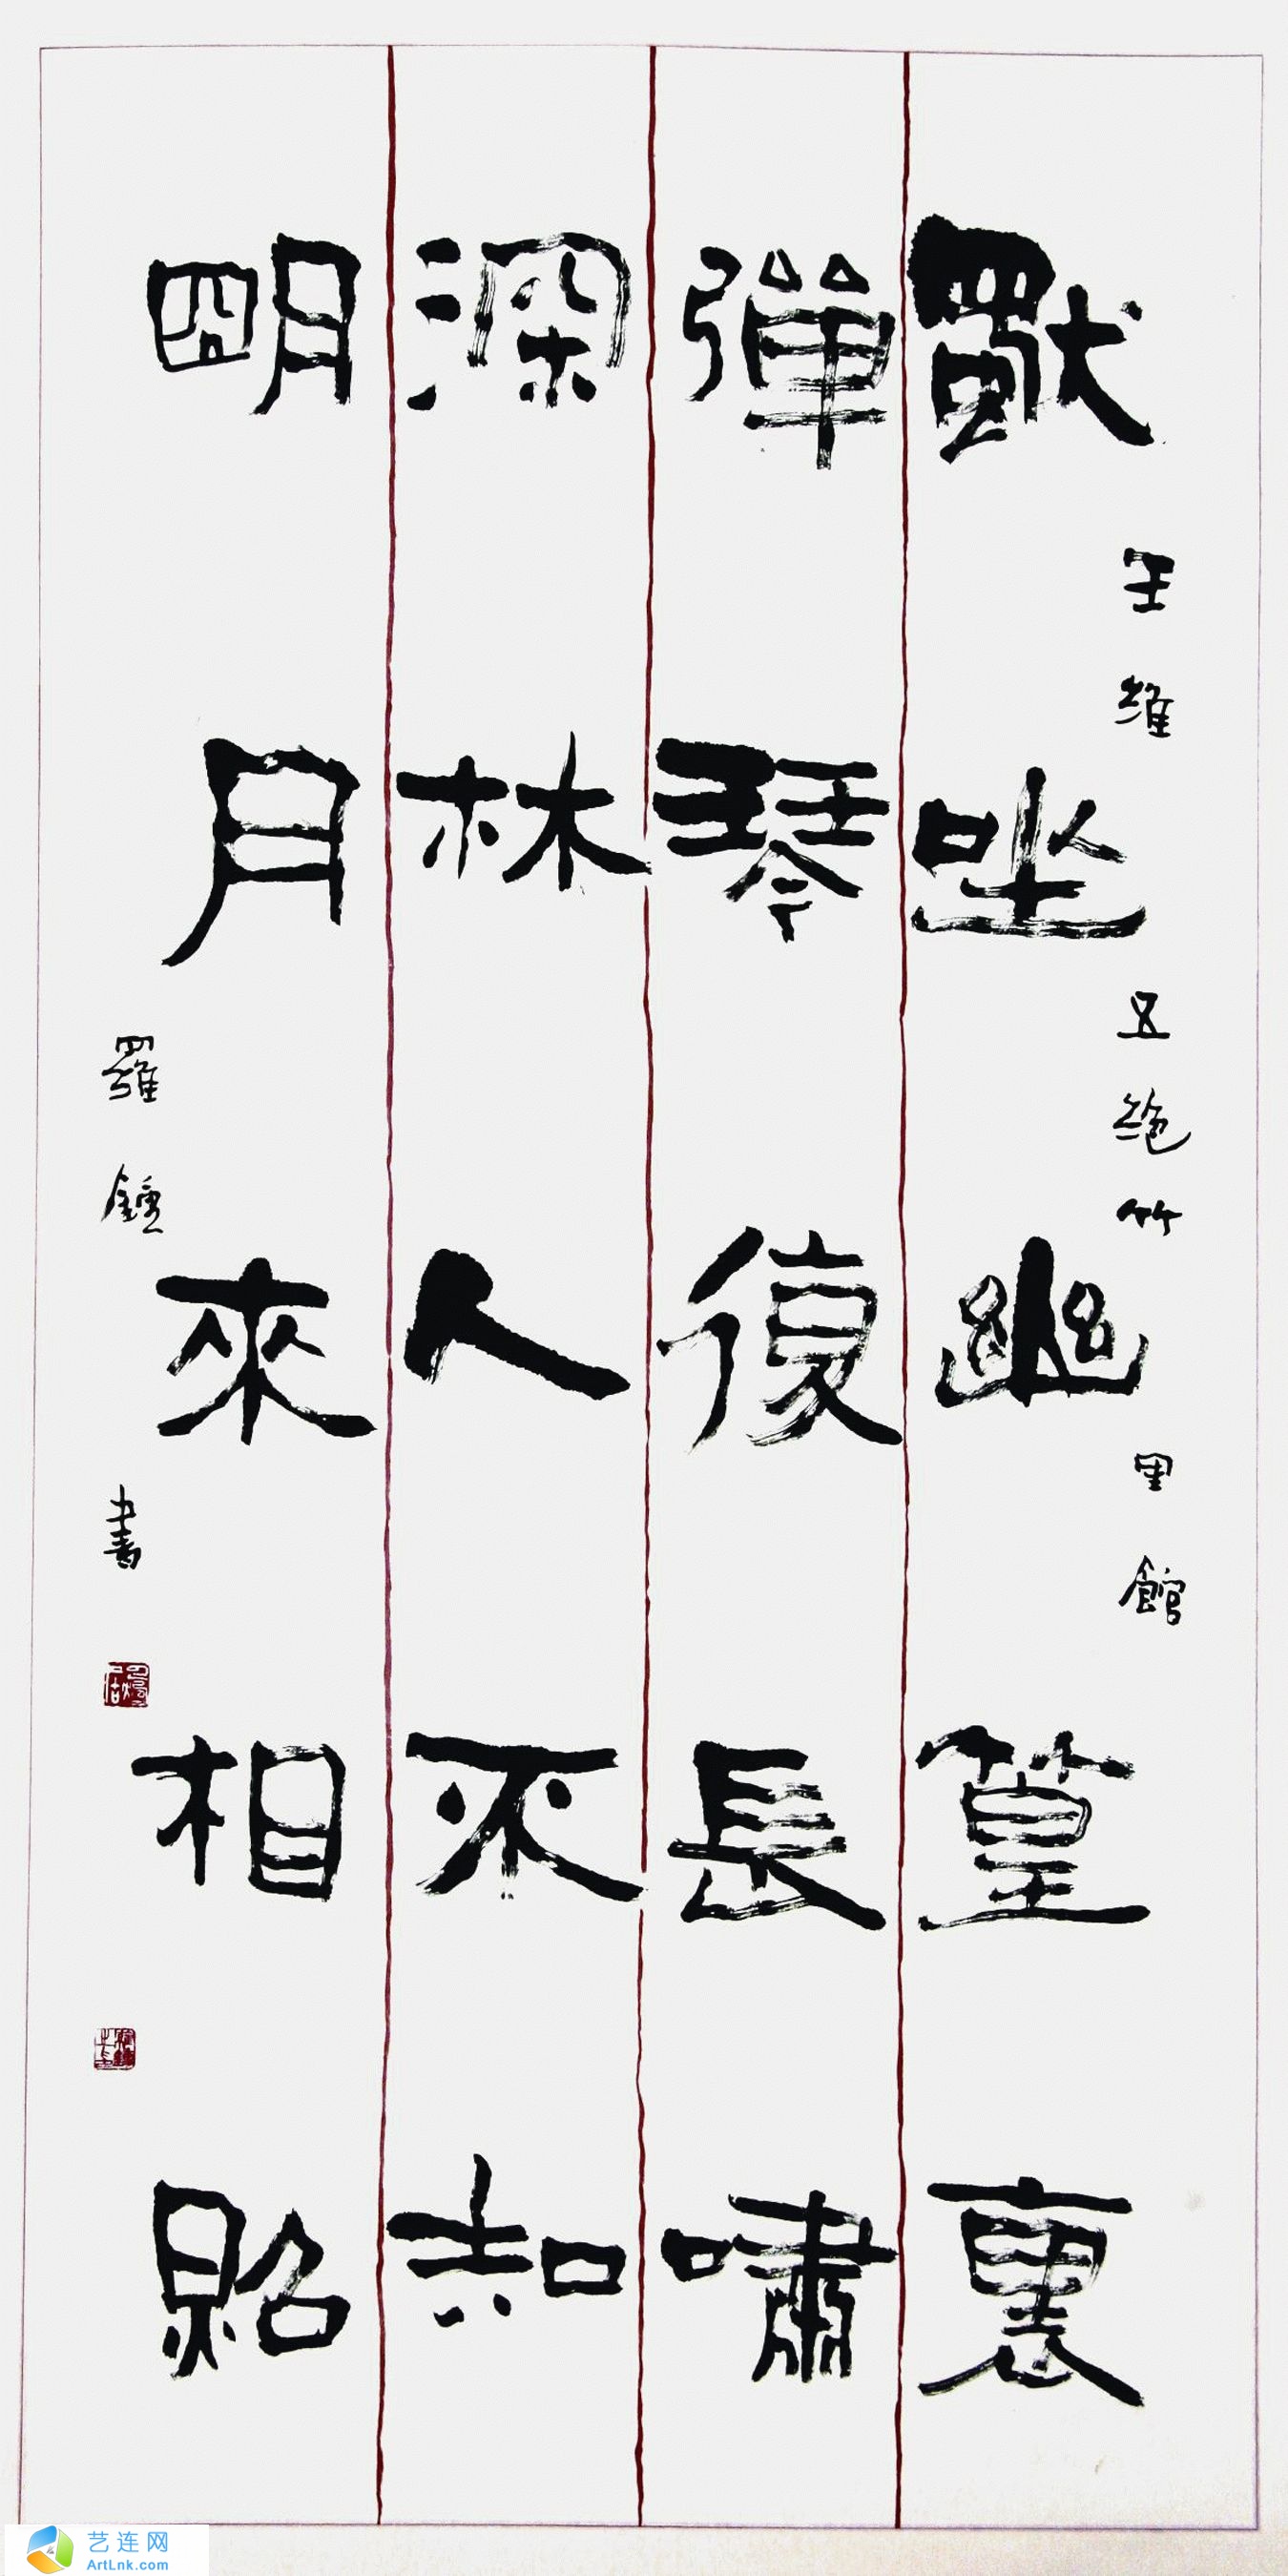 獨坐幽篁裏
彈琴復長嘯
深林人不知
明月來相照
王維五絕竹里館
羅鍾書
艺连网
ArtLnk.com